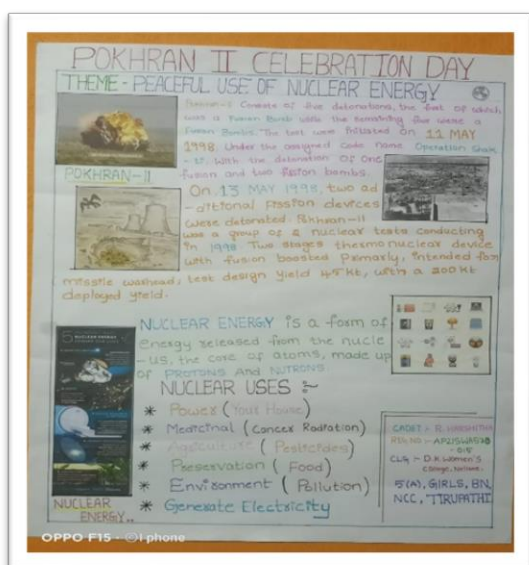 POKHRAN II CELEBRATION DAY
THEME - PEACEFUL USE OF NUCLEAR ENERGY
Consists of five detonations, the first of which
was a Fusion Bomb while the remaining five were a
Fusion Bombs. The test were initiated on 11 MAY
1998. Under the assigned code name Operation Shak
-ti. With the detonation of one
fusion and two fission bombs.
POKHRAN-II
On 13 MAY 1998, two ad
-ditional fission devices
were detonated. Pokhran-II
was a group of 5 nuclear tests conducting
in 1998. Two stages thermonuclear device
with fusion boosted Primarly, intended for
missile warhead, test design yield 45 kt, with a 200 kt
deployed yield.
NUCLEAR ENERGY is a form of
energy released from the nucle
-us, the core of atoms, made up
of PROTONS AND NUTRONS
NUCLEAR USES :-
* Power (Your House)
* Medicinal (Cancer Radiation)
* Agriculture (Pesticides)
* Preservation (Food)
* Environment (Pollution)
* Generate Electricity
NUCLEAR ENERGY
NUCLEAR
ENERGY..
CADET :- R. HARSHITHA
CLG :- D.K. Women's
College, Nellore.
5(A), GIRLS, BN,
NCC, TIRUPATHI
OPPO F15 · @I phone